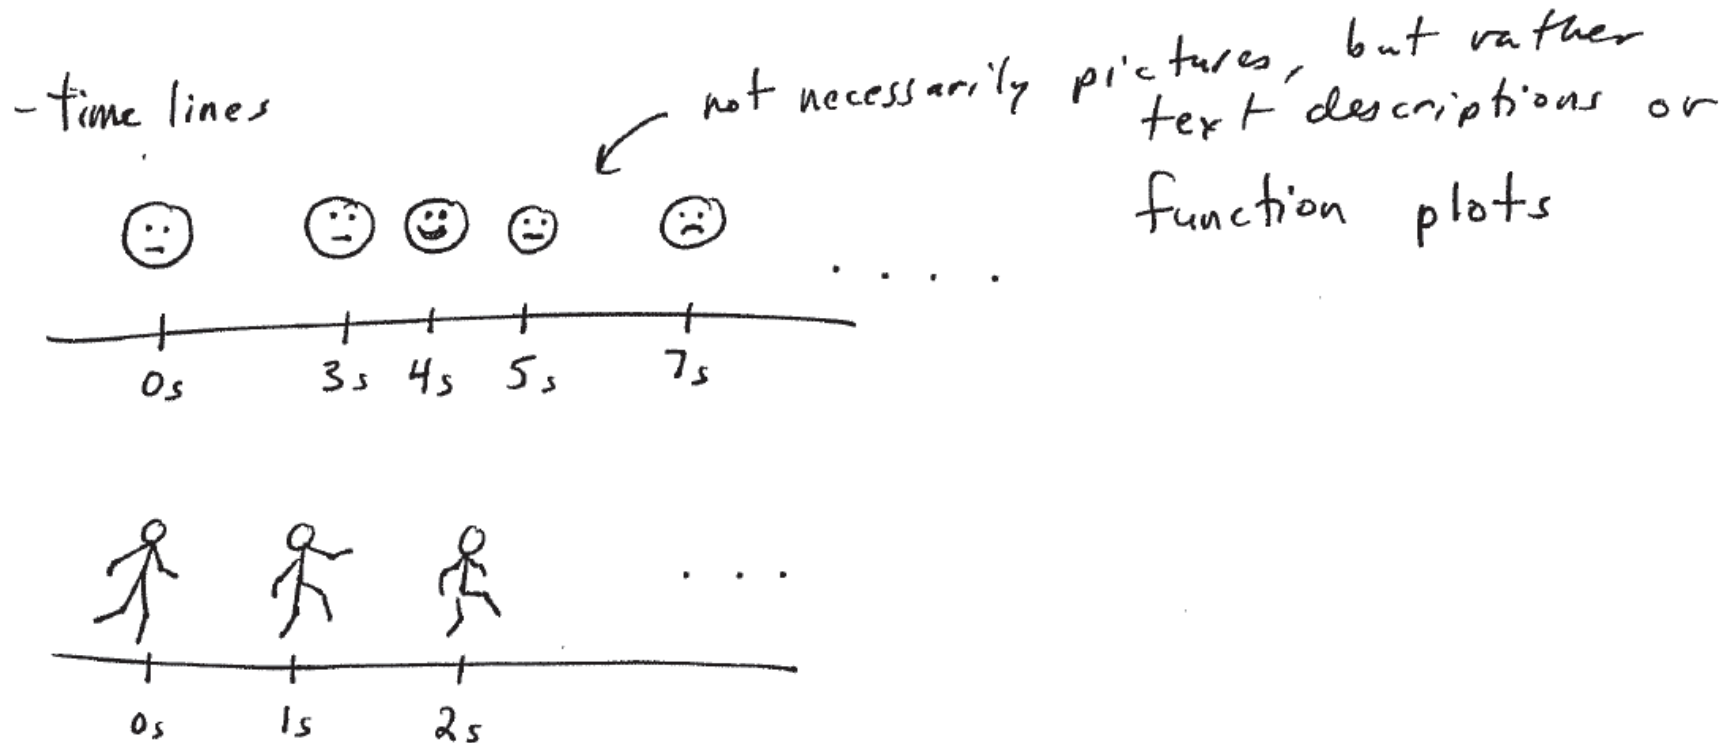 - time lines
not necessarily pictures, but rather
text descriptions or
function plots
0s 3s 4s 5s 7s
0s 1s 2s